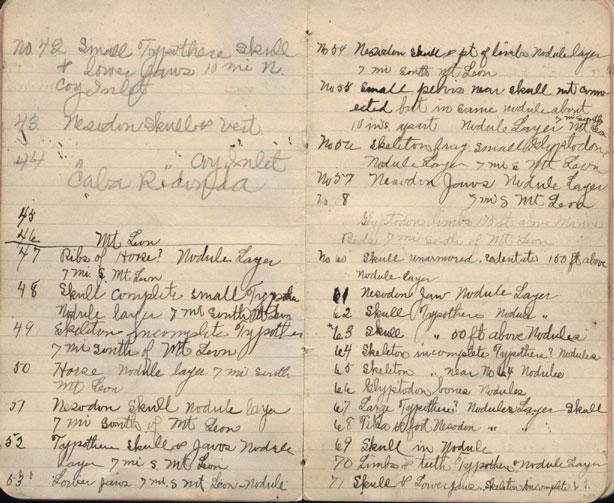 No 42 Small Typothere Skull
& lower Jaws 10 mi N.
Coy Inlet
43 Nesodon Skull & Vert.
44 " " Coy Inlet
45
46 Mt Leon
47 Ribs of Horse? Nodules Layer
7 mi. S. Mt Leon
48 Skull complete small Typothere
Nodule layer 7 mi South Mt Leon
49 Skeleton incomplete Typothere
7 mi South of Mt Leon
50 Horse Nodule layer 7 mi South
Mt Leon
51 Nesodon Skull nodule layer
7 mi South of Mt Leon
52 Typothere Skull & Jaws Nodule
layer 7 mi S Mt Leon
53 Lower jaws 7 mi S Mt Leon Nodule
No 54 Nesodon Skull & pt of limbs Nodule layer
7 mi South Mt Leon
No 55 Small pelvis near skull not conn-
ected but in same nodule about
10 ins apart Nodule Layer 7 mi South Mt Leon
No 56 Skeleton frag. small Glyptodon
Nodule Layer 7 mi S Mt Leon
No 57 Nesodon Jaws Nodule Layer
7 mi S Mt Leon
No 8
Glyptodon limbs 175 ft above Marine
Beds 7 mi South of Mt Leon
No 60 Skull unarmored edentate 150 ft above
Nodule layer
61 Nesodon Jaw Nodule Layer
62 Skull Typothere Nodule "
63 Skull " 50 ft above Nodules
64 Skeleton incomplete Typothere? Nodules
65 Skeleton " near No 64 Nodules
66 Glyptodon bones Nodules
67 Large Typothere? Nodules Layer Skull
68 Tibia & foot Nesodon " "
69 Skull in Nodule
70 Limbs & teeth Typothere Nodule Layer
71 Skull & Lower Jaws Skeleton incomplete